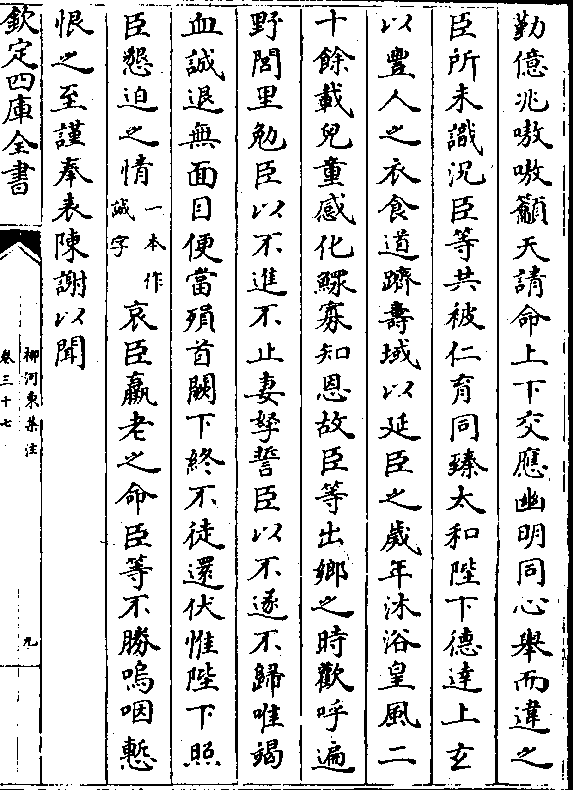 勤億兆嗷嗷籲天請命上下交應幽明同心舉而違之
臣所未識況臣等共被仁育同臻太和陛下德達上玄
以豐人之衣食道躋壽域以延臣之歲年沐浴皇風二
十餘載兒童感化鰥寡知恩故臣等出鄉之時歡呼遍
野閭里勉臣以不進不止妻孥誓臣以不遂不歸唯竭
血誠退無面目便當殞首闕下終不徒還伏惟陛下照
臣懇迫之情一本作誠字哀臣羸老之命臣等不勝嗚咽慙
恨之至謹奉表陳謝以聞
欽定四庫全書
柳河東集注
卷三十七
九